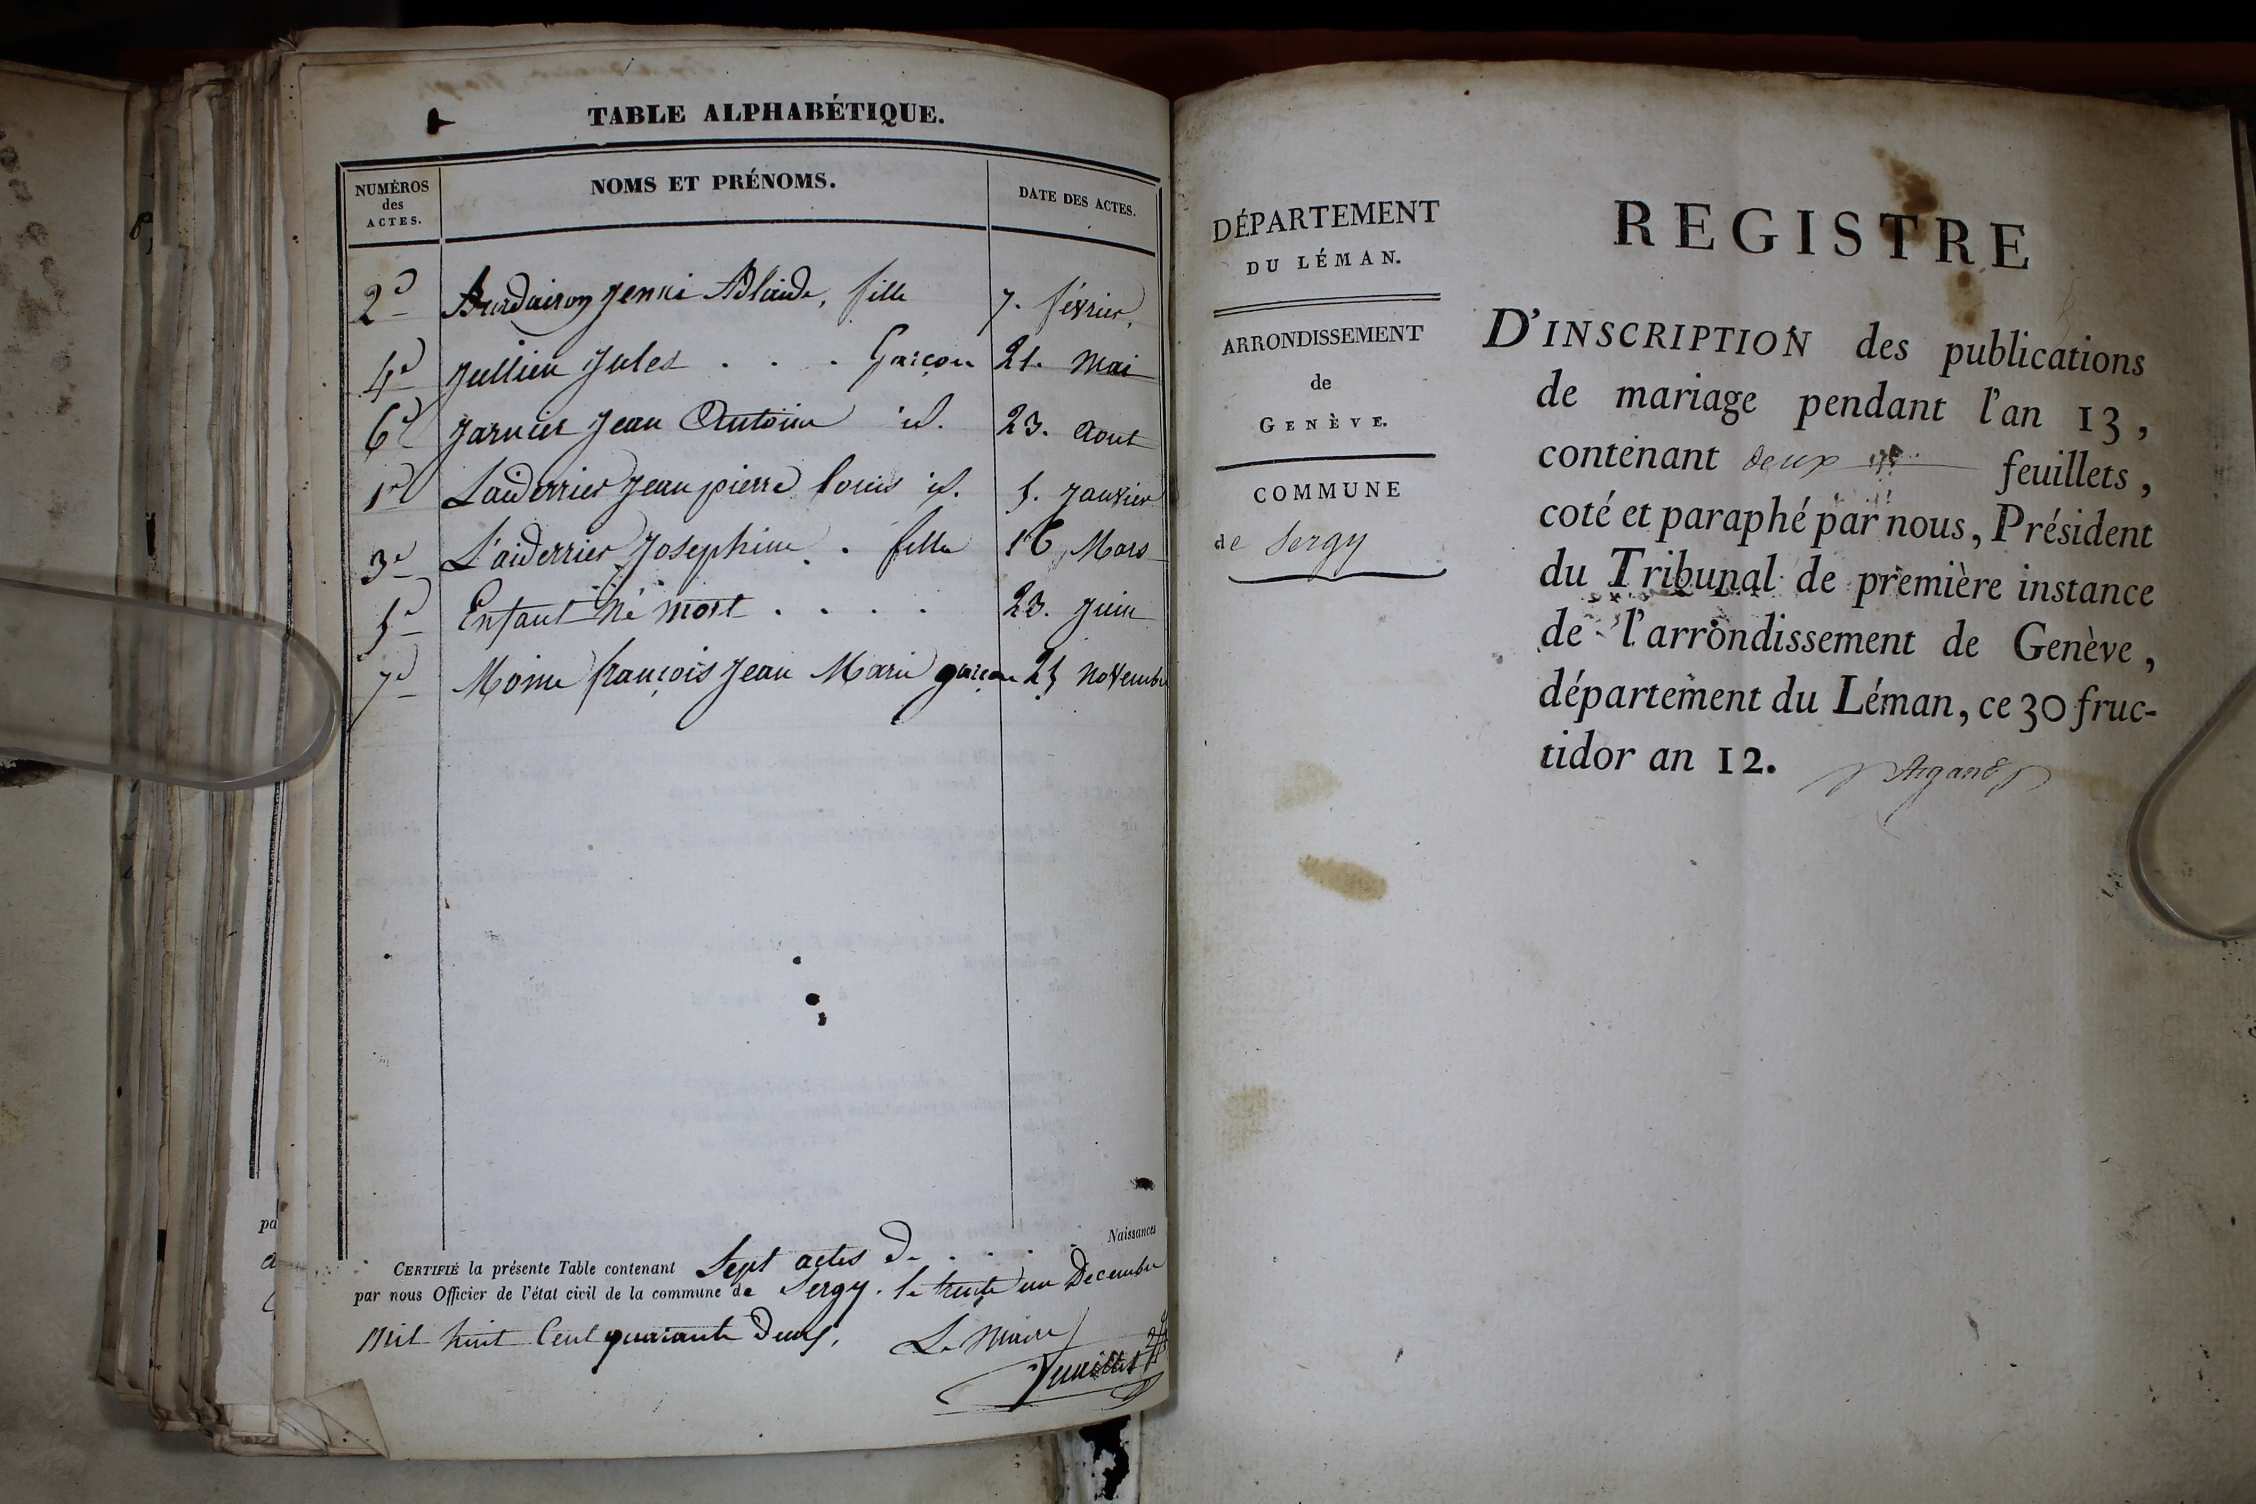 TABLE ALPHABÉTIQUE.
NUMÉROS
des
ACTES.
NOMS ET PRÉNOMS.
DATE DES ACTES.
2e Jenni fille 7. février,
4e Jullien Jules . . . Garçon 21. Mai
6e Jean Antoine id. 23. Aout
1er Laiderrier Jean pierre Louis id. 5. Janvier
3e L'aiderrier Josephine . fille 16 Mars
5e Enfant né mort . . . . 23. Juin
7e Moine françois Jean Marie garçon 25 Novembre
CERTIFIÉ la présente Table contenant Sept actes de . . . . Naissances
par nous Officier de l'état civil de la commune de Sergy. le trente un Decembre
Mil huit Cent quarante Deux,
Le Maire
DÉPARTEMENT
DU LÉMAN.
ARRONDISSEMENT
de
GENÈVE.
COMMUNE
de Sergy
REGISTRE
D'INSCRIPTION des publications
de mariage pendant l'an 13,
contenant deux feuillets,
coté et paraphé par nous, Président
du Tribunal de première instance
de l'arrondissement de Genève,
département du Léman, ce 30 fruc-
tidor an 12.
Argand